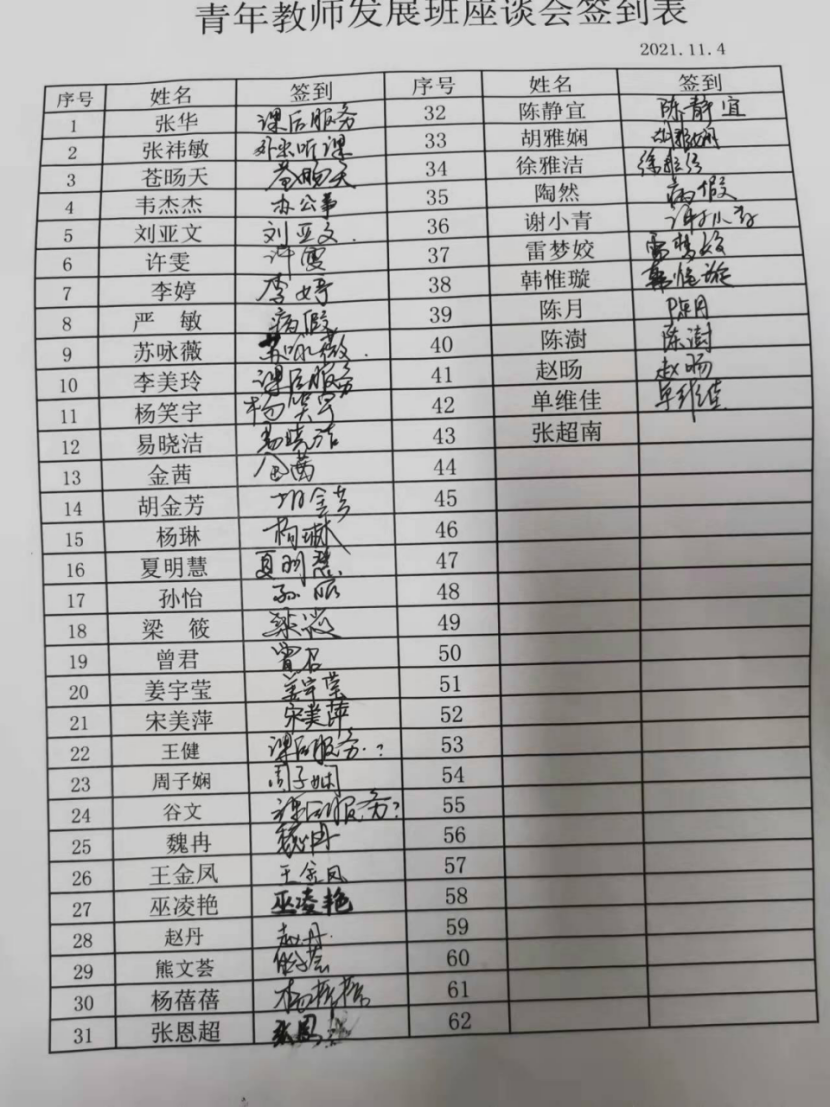 青年教师发展班座谈会签到表
2021.11.4
序号 姓名 签到 32 陈静宜 陈静宜
1 张华 课后服务 33 胡雅娴 胡雅娴
2 张祎敏 外出听课 34 徐雅洁 徐雅洁
3 苍旸天 苍旸天 35 陶然 病假
4 韦杰杰 办公事 36 谢小青 谢小青
5 刘亚文 刘亚文. 37 雷梦姣 雷梦姣
6 许雯 许雯 38 韩惟璇 韩惟璇
7 李婷 李婷 39 陈月 陈月
8 严 敏 病假 40 陈澍 陈澍
9 苏咏薇 苏咏薇. 41 赵旸 赵旸
10 李美玲 课后服务 42 单维佳 单维佳
11 杨笑宇 杨笑宇 43 张超南
12 易晓洁 易晓洁 44
13 金茜 金茜 45
14 胡金芳 胡金芳 46
15 杨琳 杨琳 47
16 夏明慧 夏明慧 48
17 孙怡 孙怡 49
18 梁 筱 梁筱 50
19 曾君 曾君 51
20 姜宇莹 姜宇莹 52
21 宋美萍 宋美萍 53
22 王健 课后服务.? 54
23 周子娴 周子娴 55
24 谷文 课后服务? 56
25 魏冉 魏冉 57
26 王金凤 王金凤 58
27 巫凌艳 巫凌艳 59
28 赵丹 赵丹. 60
29 熊文荟 熊文荟 61
30 杨蓓蓓 杨蓓蓓 62
31 张恩超 张恩超
姓名 签到